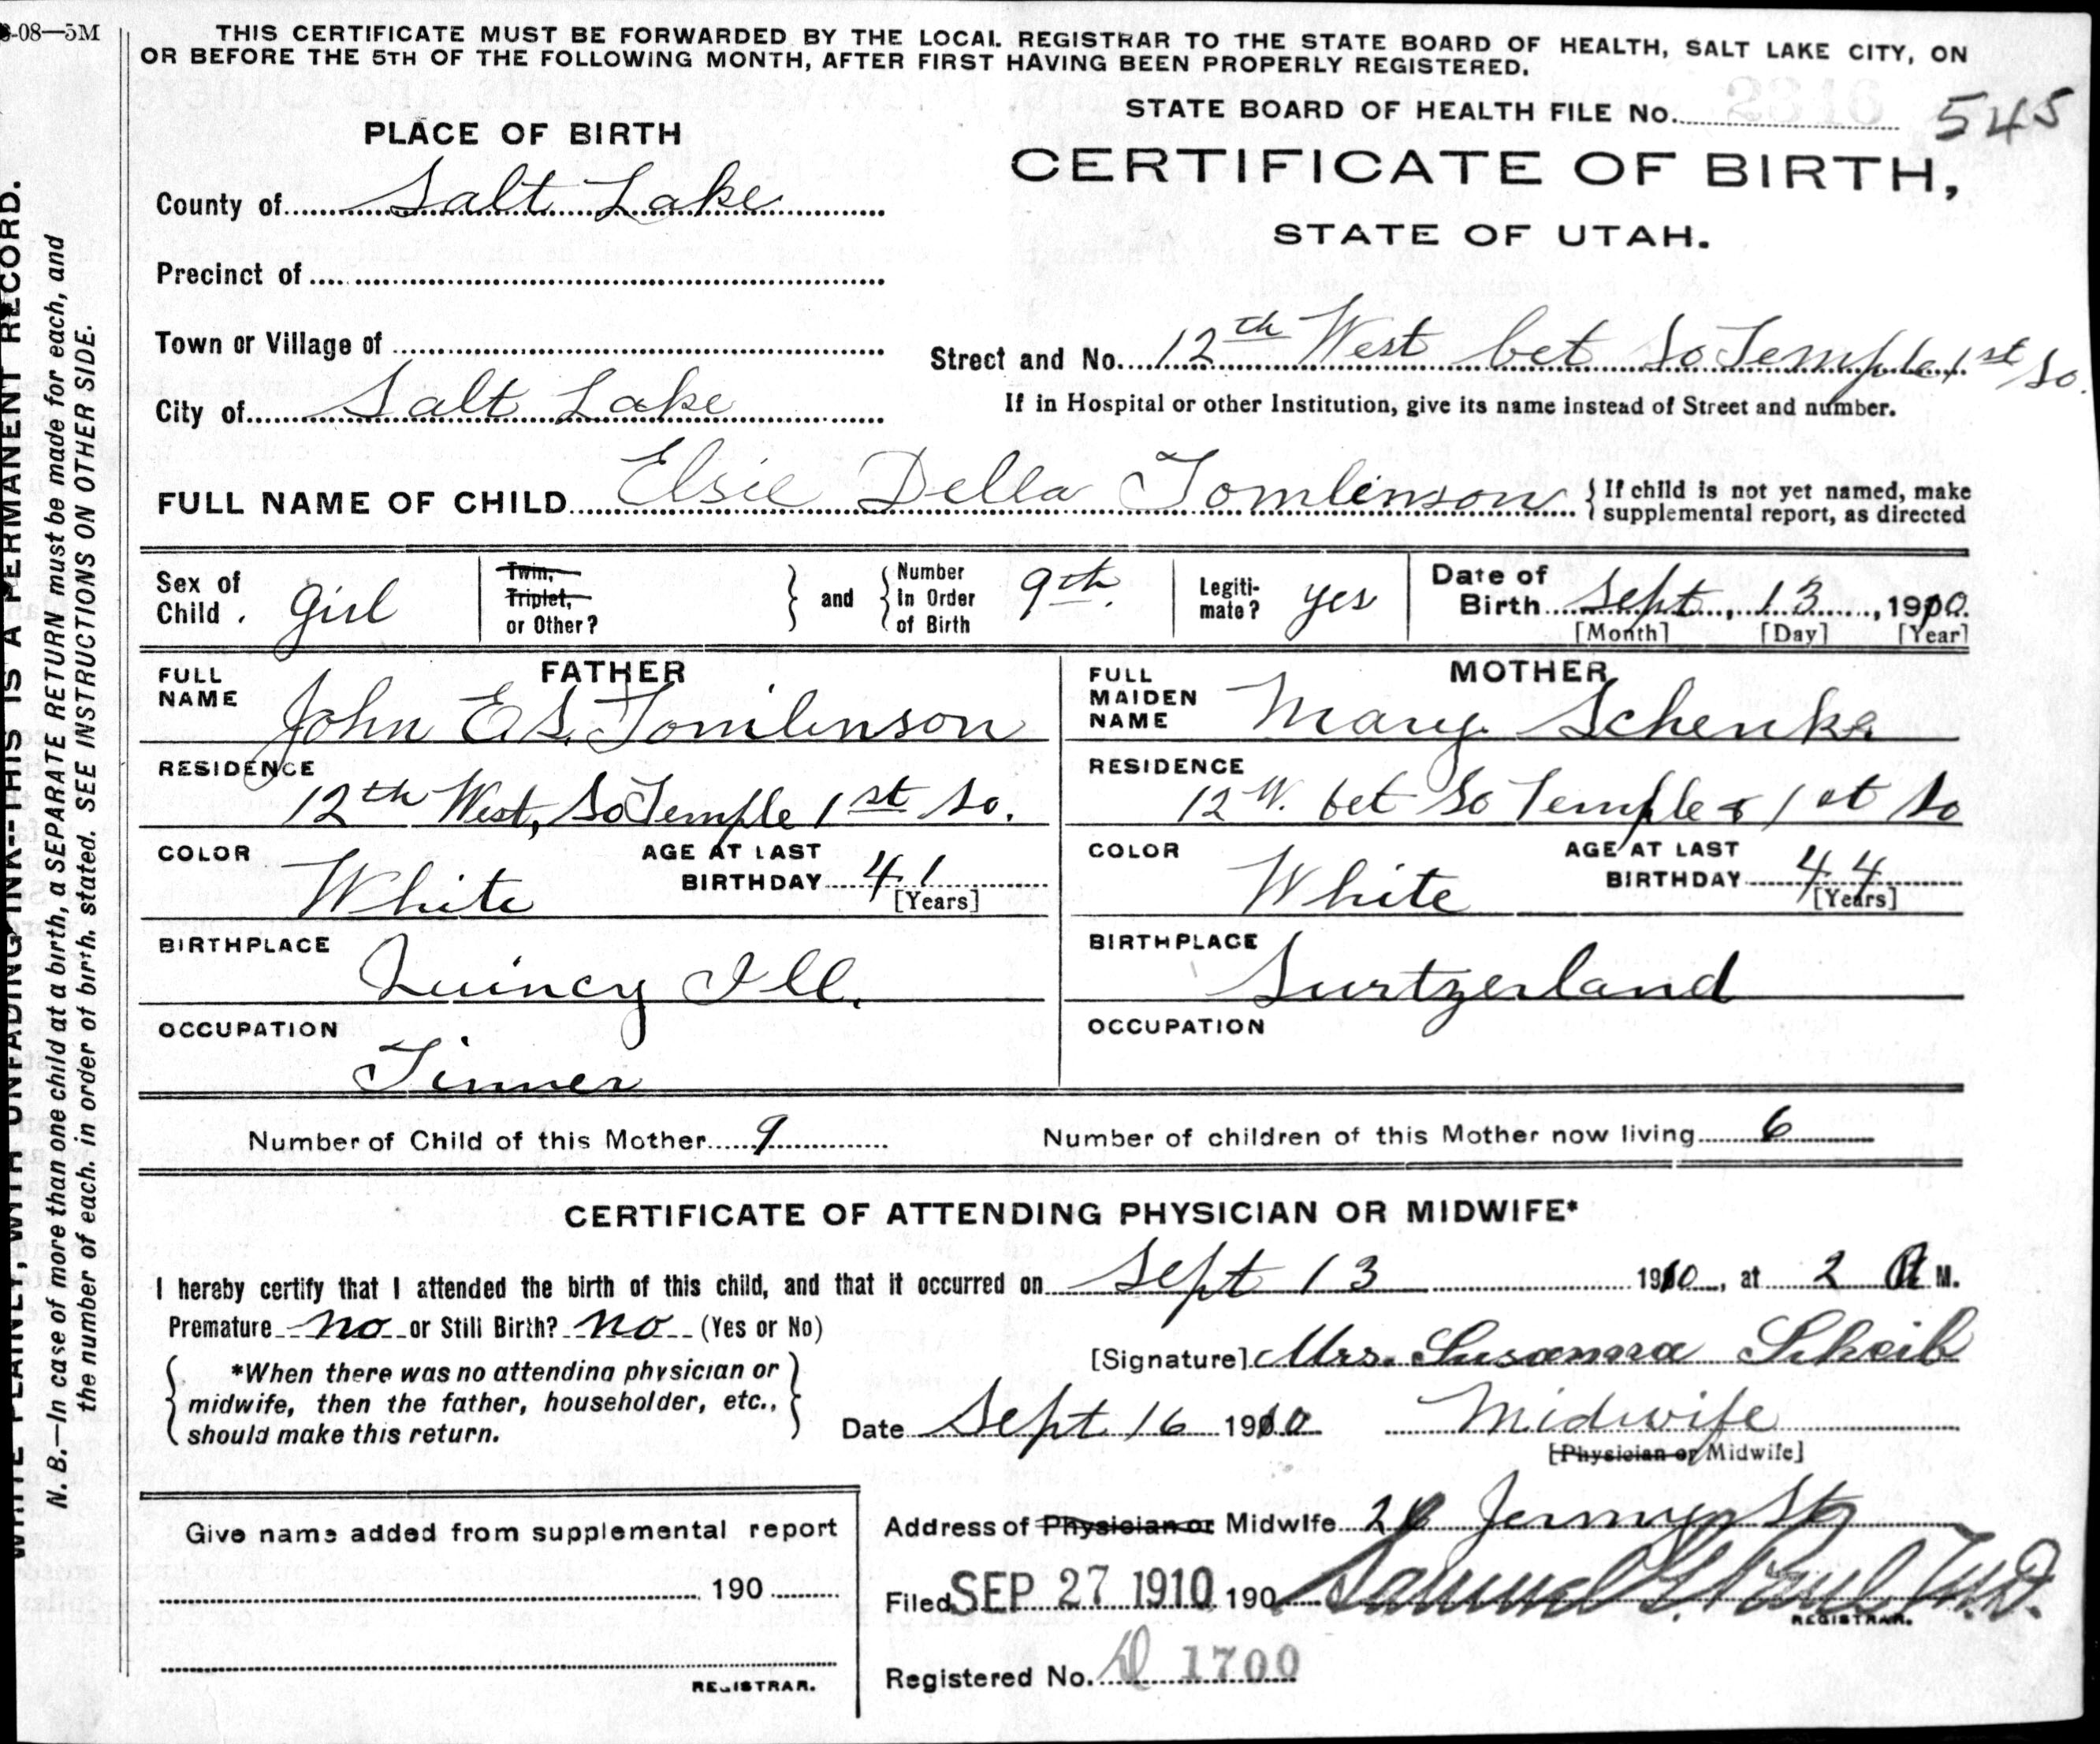 -08—5M
THIS CERTIFICATE MUST BE FORWARDED BY THE LOCAL REGISTRAR TO THE STATE BOARD OF HEALTH, SALT LAKE CITY, ON
OR BEFORE THE 5TH OF THE FOLLOWING MONTH, AFTER FIRST HAVING BEEN PROPERLY REGISTERED.
STATE BOARD OF HEALTH FILE No. 545
PLACE OF BIRTH
CERTIFICATE OF BIRTH,
STATE OF UTAH.
County of Salt Lake
Precinct of
Town or Village of
Street and No. 12th West bet So Temple 1st So.
City of Salt Lake
If in Hospital or other Institution, give its name instead of Street and number.
FULL NAME OF CHILD Elsie Della Tomlinson { If child is not yet named, make
supplemental report, as directed
Sex of Child. girl
Twin, Triplet, or Other? } and { Number in Order of Birth 9th.
Legiti-mate? yes
Date of Birth Sept, 13, 1910.
[Month] [Day] [Year]
FATHER
FULL NAME John E S. Tomlinson
RESIDENCE
12th West, So Temple 1st So.
COLOR White AGE AT LAST BIRTHDAY 41 [Years]
BIRTHPLACE Quincy Ill.
OCCUPATION
Tinner
MOTHER
FULL MAIDEN NAME Mary Schenke
RESIDENCE
12 W. bet So Temple & 1st So
COLOR White AGE AT LAST BIRTHDAY 44 [Years]
BIRTHPLACE Surtzerland
OCCUPATION
Number of Child of this Mother 9 Number of children of this Mother now living 6
CERTIFICATE OF ATTENDING PHYSICIAN OR MIDWIFE*
I hereby certify that I attended the birth of this child, and that it occurred on Sept 13 1910, at 2 A M.
Premature no or Still Birth? no (Yes or No)
{ *When there was no attending physician or
midwife, then the father, householder, etc.,
should make this return. }
[Signature] Mrs. Susanna Scheib
Date Sept 16 1910 Midwife
[Physician or Midwife]
Give name added from supplemental report
190
REGISTRAR.
Address of Physician or Midwife Jermyn St
Filed SEP 27 1910 190 Samuel G. Paul M.D.
REGISTRAR.
Registered No. 1700
WRITE PLAINLY, WITH UNFADING INK—THIS IS A PERMANENT RECORD.
N. B.—In case of more than one child at a birth, a SEPARATE RETURN must be made for each, and
the number of each, in order of birth, stated. SEE INSTRUCTIONS ON OTHER SIDE.